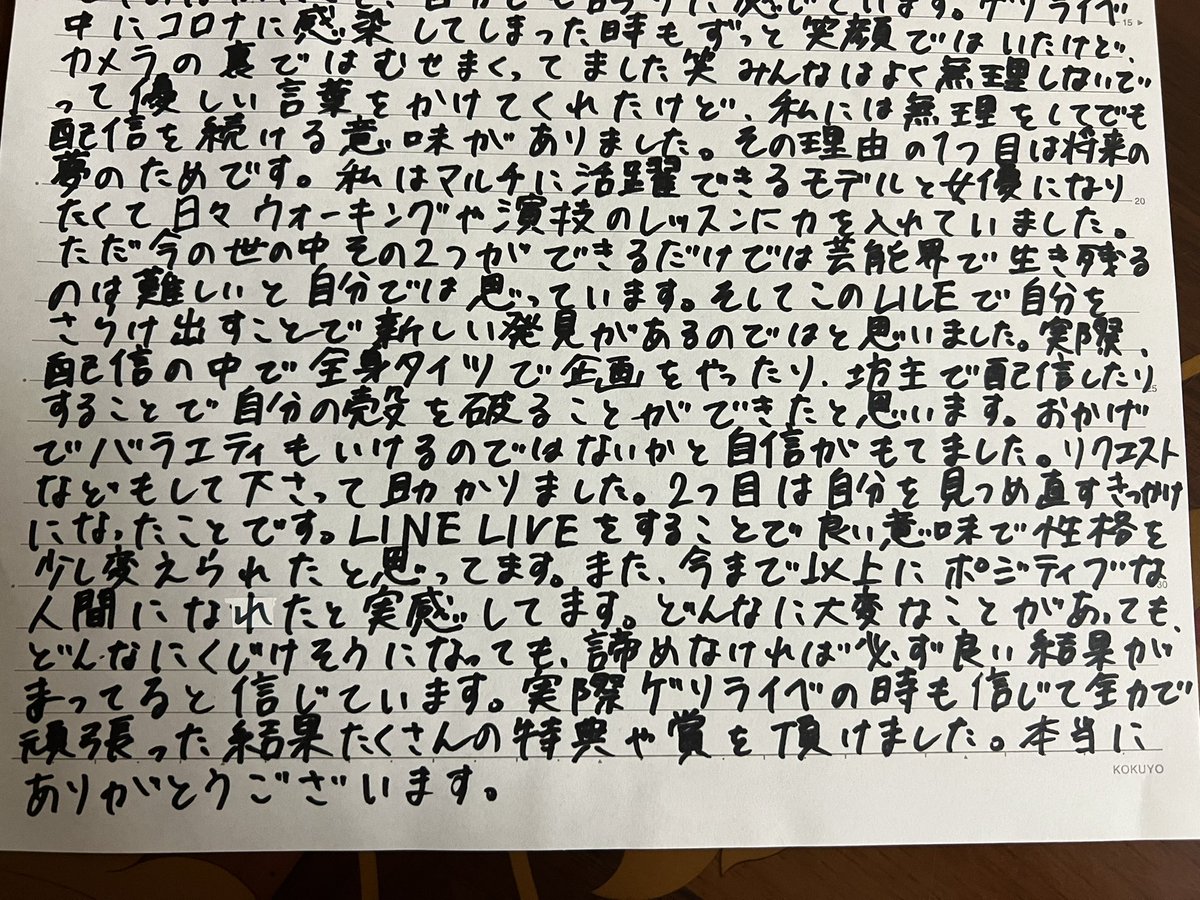 感じています。ゲリライベ
中にコロナに感染してしまった時もずっと笑顔ではいたけど、
カメラの裏ではむせまくってました笑 みんなはよく無理しないで
って優しい言葉をかけてくれたけど、私には無理をしてでも
配信を続ける意味がありました。その理由の1つ目は将来の
夢のためです。私はマルチに活躍できるモデルと女優になり
たくて日々ウォーキングや演技のレッスンに力を入れていました。
ただ今の世の中その2つができるだけでは芸能界で生き残る
のは難しいと自分では思っています。そしてこのLILEで自分を
さらけ出すことで新しい発見があるのではと思いました。実際、
配信の中で全身タイツで企画をやったり、坊主で配信したり
することで自分の殻を破ることができたと思います。おかげ
でバラエティもいけるのではないかと自信がもてました。リクエスト
などもして下さって助かりました。2つ目は自分を見つめ直すきっかけ
になったことです。LINE LIVEをすることで良い意味で性格を
少し変えられたと思ってます。また、今まで以上にポジティブな
人間になれたと実感してます。どんなに大変なことがあっても、
どんなにくじけそうになっても、諦めなければ必ず良い結果が
まってると信じています。実際ゲリライベの時も信じて全力で
頑張った結果たくさんの特典や賞を頂けました。本当に
ありがとうございます。
15
20
25
30
KOKUYO